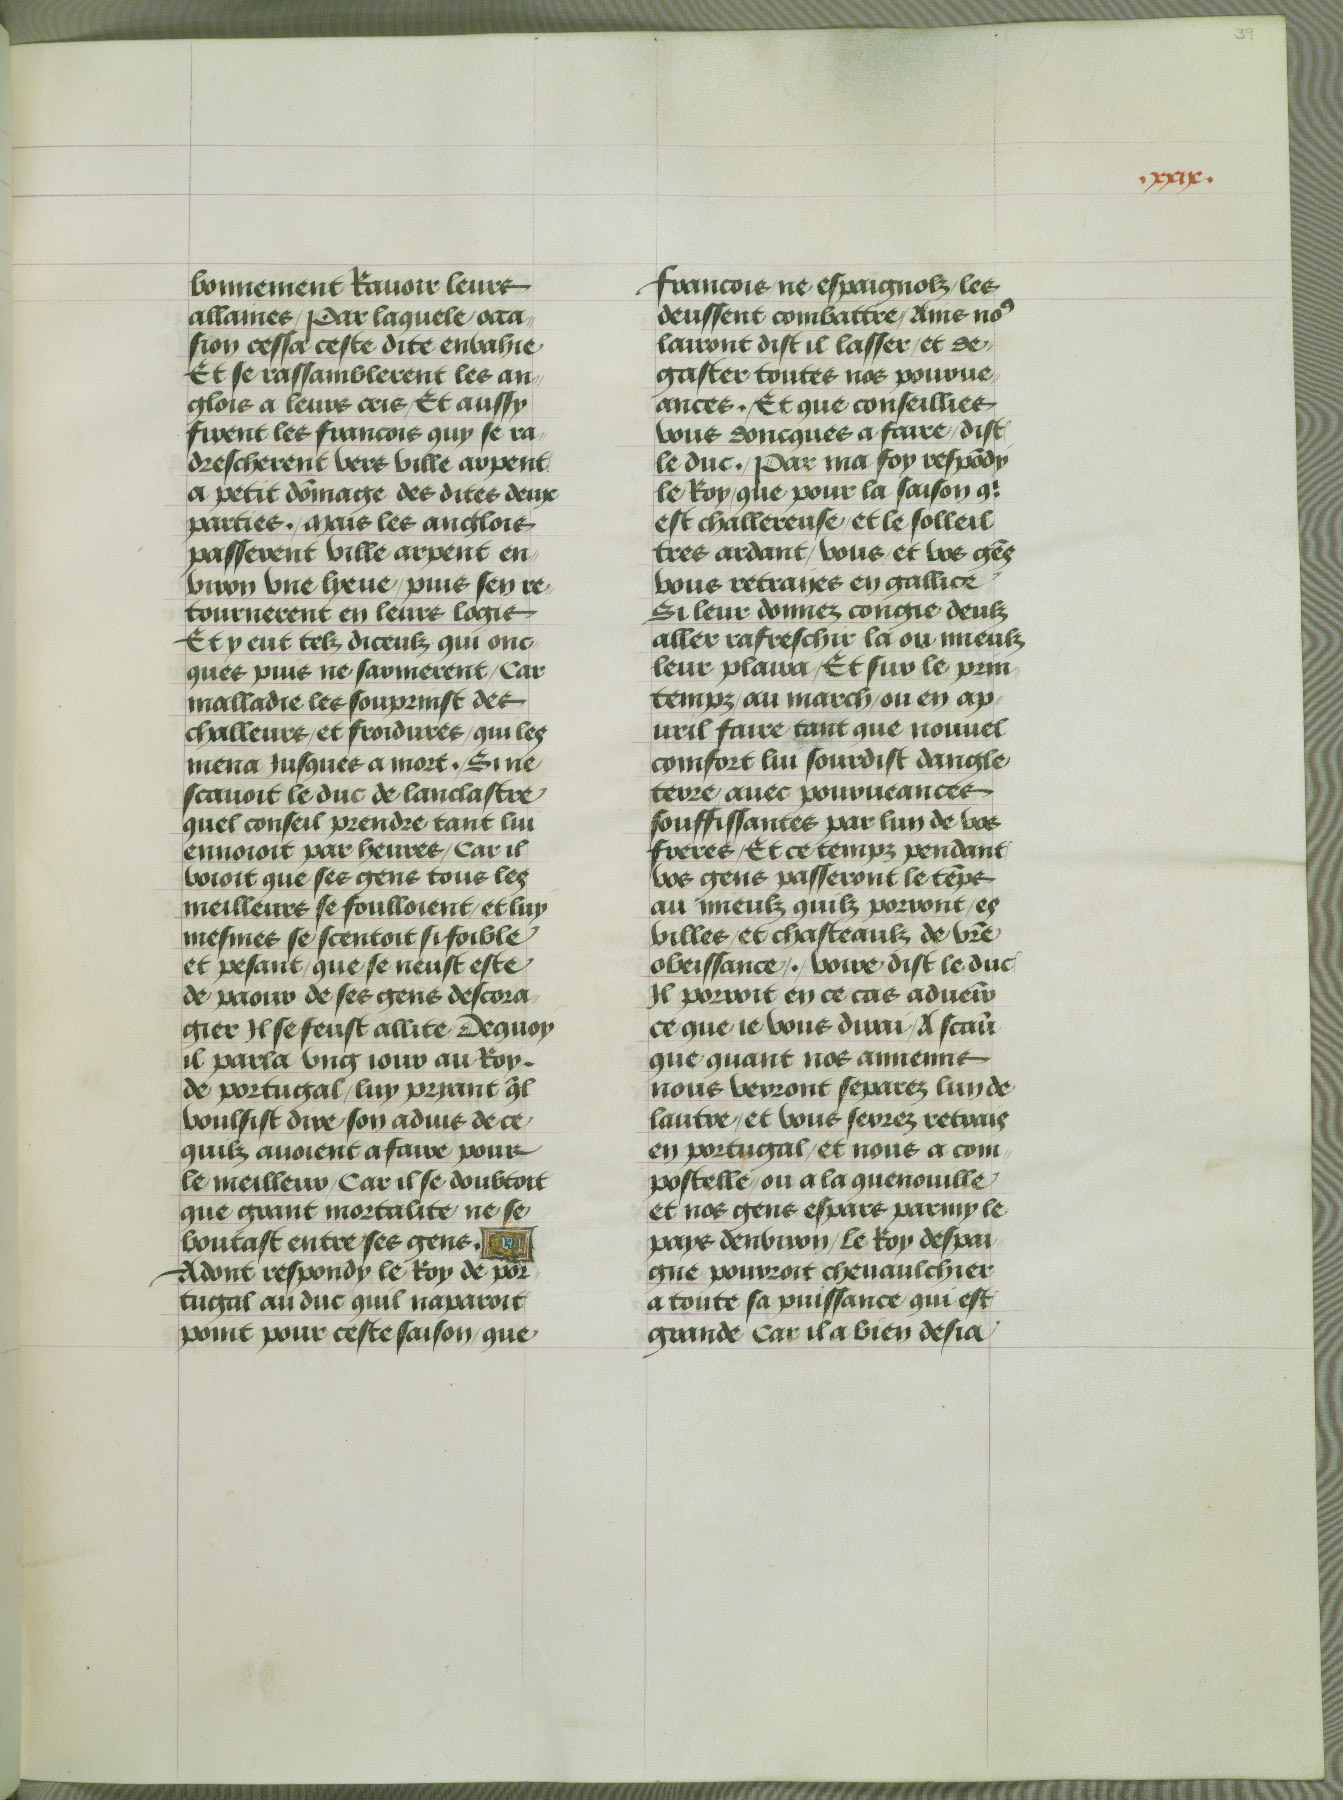 39
.xxix.
bonnement Rauoir leurs
allaines / Par laquele occa„
sion cessa ceste dite enuahie
Et se rassamblerent les an„
glois a leurs cris / Et aussy
firent les francois quy se ra„
drescherent vers ville arpent
a petit dōmage des dites deux
parties . / Mais les anglois
passerent ville arpent en„
viron vne lyeue / puis sen re„
tournerent en leurs logis
Et y eut telz diceulz qui onc
ques puis ne sarmerent / Car
malladie les souprinst des
challeurs / et froidures / qui les
mena Jusques a mort . / Si ne
scauoit le duc de lanclastre
quel conseil prendre tant lui
ennoioit par heures / Car il
veioit que ses gens tous les
meilleurs se foulloient / et luy
mesmes se scentoit si foible
et pesant / que se neust este
de paour de ses gens descora„
gier Il se feust allite / Dequoy
il parla vng iour au Roy
de portugal / luy pryant q̄l
voulsist dire son aduis de ce
quilz auoient a faire pour
le meilleur / Car il se doubtoit
que grant mortalite ne se
boutast entre ses gens .
Adont respondy le Roy de por„
tugal au duc quil naparoit
point pour ceste saison / que
francois ne espaignolz / les
deussent combattre / Ains no9
lairont dist il lasser / et de„
gaster toutes nos pourue„
ances . / Et que conseillies
vous doncques a faire / dist
le duc . / Par ma foy respōdy
le Roy / que pour la saison qͥ
est challereuse / et le solleil
tres ardant / vous / et vos gēs
vous retrayes en gallice
Si leur donnez congie deulz
aller rafreschir la ou mieulz
leur plaira / Et sur le prin„
tempz / au march / ou en ap„
uril faire tant que nouuel
comfort lui sourdist dangle
terre / auec pourueances
souffissantes par lun de vos
freres / Et ce tempz pendant
vos gens passeront le tēps
au mieulz quilz porront / es
villes / et chasteaulz de vr̄e
obeissance / . / voire dist le duc
Il porroit en ce cas aduen̄
ce que ie vous dirai / A scau̅
que quant nos annemis
nous verront separez lun de
lautre / et vous serrez retrais
en portugal / et nous a com„
postelle / ou a la quenouille
et nos gens espars parmy le
pays denviron / Le Roy despai„
gne pourroit cheuaulchier
a toute sa puissance qui est
grande Car il a bien desia